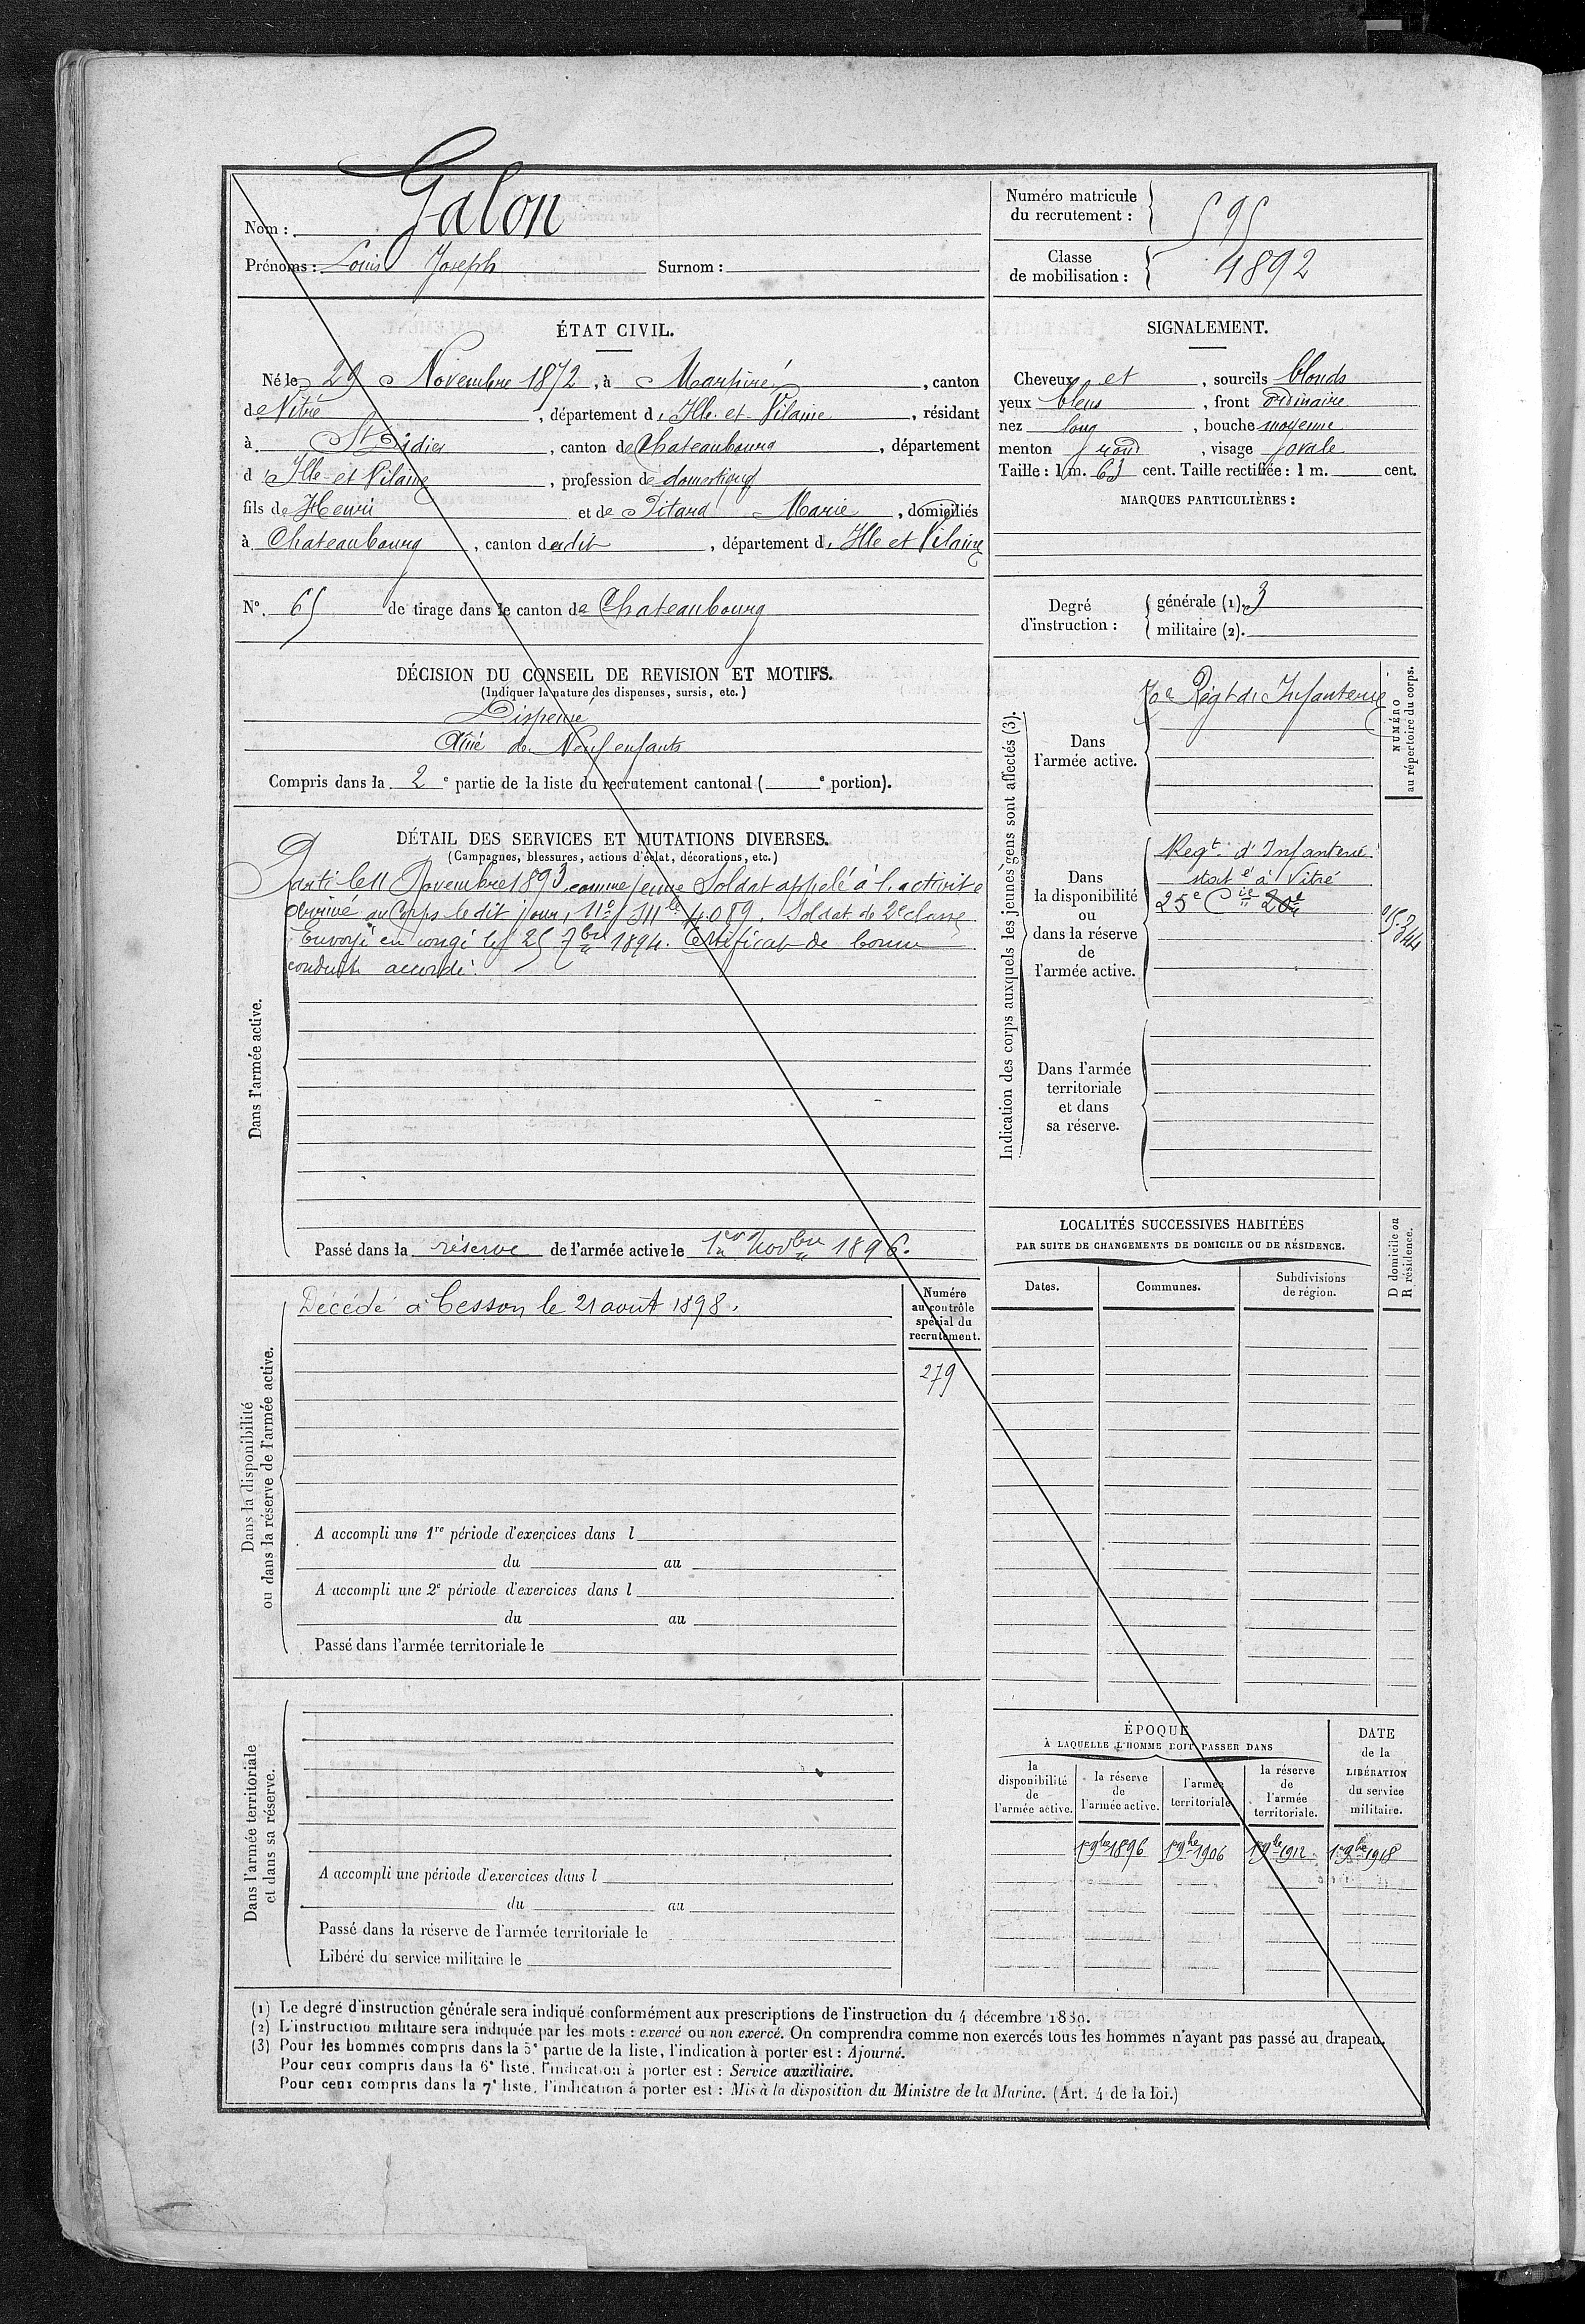 Nom : Galon
Prénoms : Louis Joseph Surnom :
Numéro matricule du recrutement : 595
Classe de mobilisation : 1892
ÉTAT CIVIL.
Né le 29 Novembre 1872, à Marpiré, canton
de Vitré, département d'Ille-et-Vilaine, résidant
à St Didier, canton de Chateaubourg, département
d'Ille-et-Vilaine, profession de domestique
fils de Henri et de Pitard Marie, domiciliés
à Chateaubourg, canton dudit, département d'Ille et Vilaine
N° 65 de tirage dans le canton de Chateaubourg
SIGNALEMENT.
Cheveux et, sourcils blonds
yeux bleus, front ordinaire
nez long, bouche moyenne
menton rond, visage ovale
Taille : 1 m. 63 cent. Taille rectifiée : 1 m. cent.
MARQUES PARTICULIÈRES :
Degré d'instruction : générale (1). 3
militaire (2).
DÉCISION DU CONSEIL DE REVISION ET MOTIFS.
(Indiquer la nature des dispenses, sursis, etc.)
Dispensé
Aîné de Neuf enfants
Compris dans la 2e partie de la liste du recrutement cantonal ( e portion).
DÉTAIL DES SERVICES ET MUTATIONS DIVERSES.
(Campagnes, blessures, actions d'éclat, décorations, etc.)
Dans l'armée active.
Parti le 11 Novembre 1893 comme jeune Soldat appelé à l'activité
Arrivé au Corps le dit jour, N° Mle 4089. Soldat de 2e classe
Envoyé en congé le 25 7bre 1894. Certificat de bonne
conduite accordé.
Passé dans la réserve de l'armée active le 1er Novbre 1896.
Indication des corps auxquels les jeunes gens sont affectés (3).
NUMÉRO au répertoire du corps.
Dans l'armée active.
70e Régt d'Infanterie
Dans la disponibilité ou dans la réserve de l'armée active.
Regt d'Infanterie
statné à Vitré
25e Cie 20e
Dans l'armée territoriale et dans sa réserve.
Dans la disponibilité ou dans la réserve de l'armée active.
Décédé à Cesson le 21 août 1898.
Numéro au contrôle spécial du recrutement.
279
A accompli une 1re période d'exercices dans l
du au
A accompli une 2e période d'exercices dans l
du au
Passé dans l'armée territoriale le
LOCALITÉS SUCCESSIVES HABITÉES
PAR SUITE DE CHANGEMENTS DE DOMICILE OU DE RÉSIDENCE.
Dates. Communes. Subdivisions de région.
D domicile ou R résidence.
Dans l'armée territoriale et dans sa réserve.
A accompli une période d'exercices dans l
du au
Passé dans la réserve de l'armée territoriale le
Libéré du service militaire le
ÉPOQUE
À LAQUELLE L'HOMME DOIT PASSER DANS
la disponibilité de l'armée active. la réserve de l'armée active. l'armée territoriale. la réserve de l'armée territoriale.
DATE de la LIBÉRATION du service militaire.
1er 9bre 1896 1er 9bre 1906 1er 9bre 1912 1er 9bre 1918
(1) Le degré d'instruction générale sera indiqué conformément aux prescriptions de l'instruction du 4 décembre 1889.
(2) L'instruction militaire sera indiquée par les mots : exercé ou non exercé. On comprendra comme non exercés tous les hommes n'ayant pas passé au drapeau.
(3) Pour les hommes compris dans la 5e partie de la liste, l'indication à porter est : Ajourné.
Pour ceux compris dans la 6e liste, l'indication à porter est : Service auxiliaire.
Pour ceux compris dans la 7e liste, l'indication à porter est : Mis à la disposition du Ministre de la Marine. (Art. 4 de la loi.)